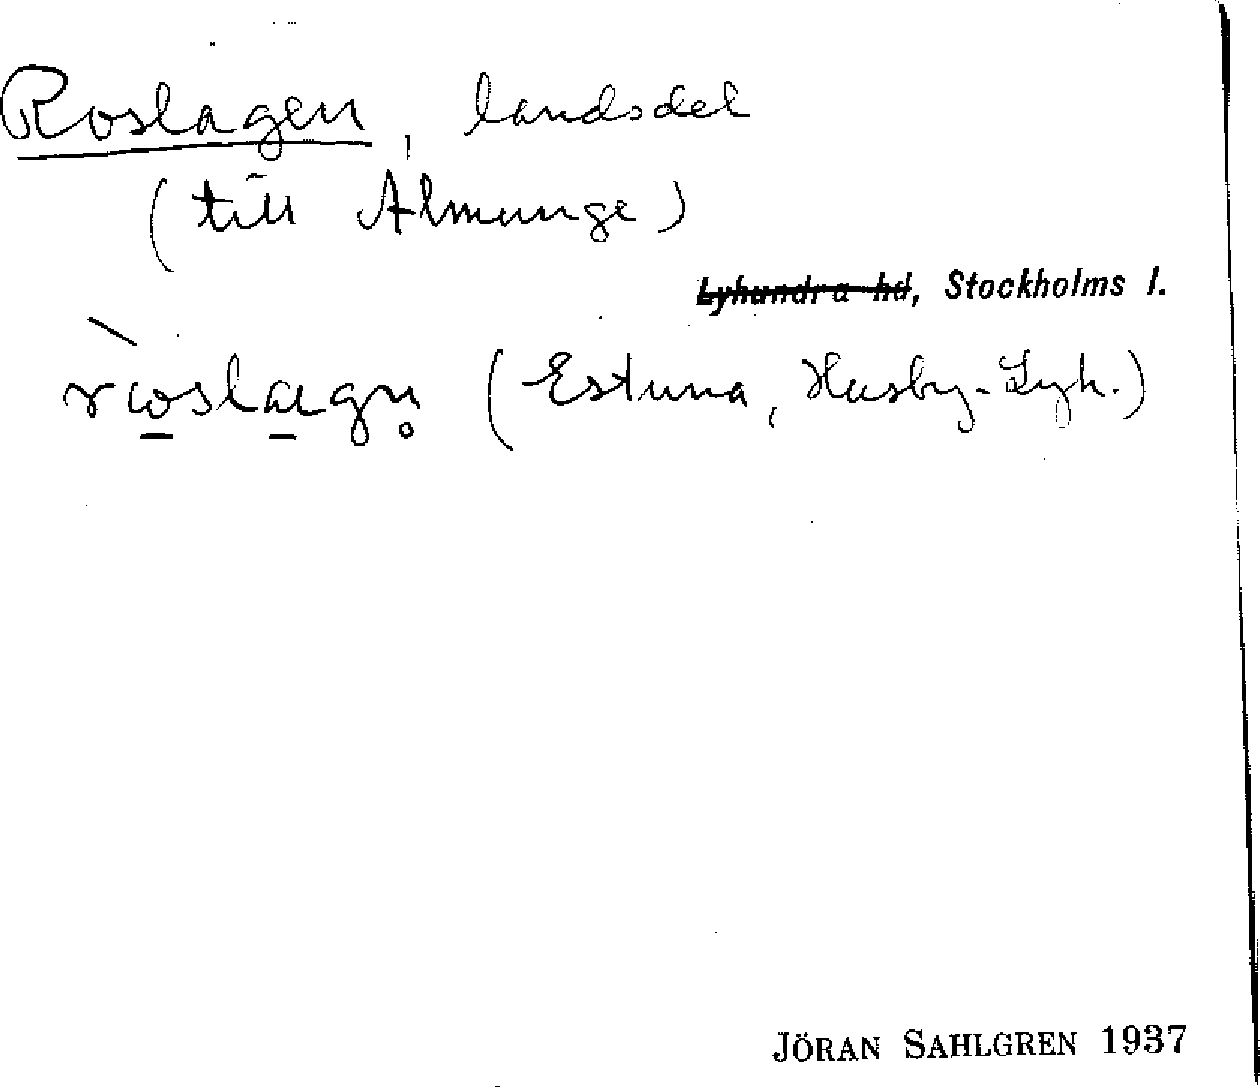 Roslagen, landsdel
(till Almunge)
Lyhundra hd, Stockholms l.
r̀ɷslagn̥ (Estuna, Husby-Lyh.)
JÖRAN SAHLGREN 1937